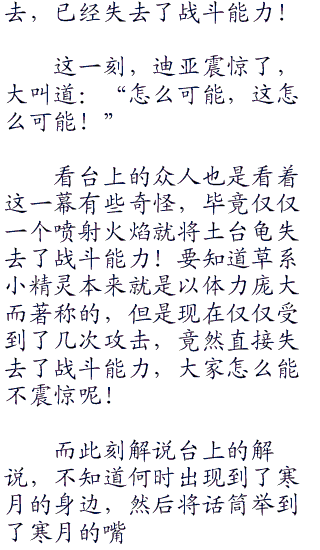 去，已经失去了战斗能力！
这一刻，迪亚震惊了，
大叫道：“怎么可能，这怎
么可能！”
看台上的众人也是看着
这一幕有些奇怪，毕竟仅仅
一个喷射火焰就将土台龟失
去了战斗能力！要知道草系
小精灵本来就是以体力庞大
而著称的，但是现在仅仅受
到了几次攻击，竟然直接失
去了战斗能力，大家怎么能
不震惊呢！
而此刻解说台上的解
说，不知道何时出现到了寒
月的身边，然后将话筒举到
了寒月的嘴